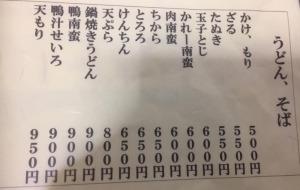 うどん、そば
かけ、もり 500円
ざる 550円
たぬき 550円
玉子とじ 600円
かれー南蛮 600円
肉南蛮 600円
ちから 650円
とろろ 650円
けんちん 650円
天ぷら 800円
鍋焼きうどん 900円
鴨南蛮 900円
鴨汁せいろ 900円
天もり 950円